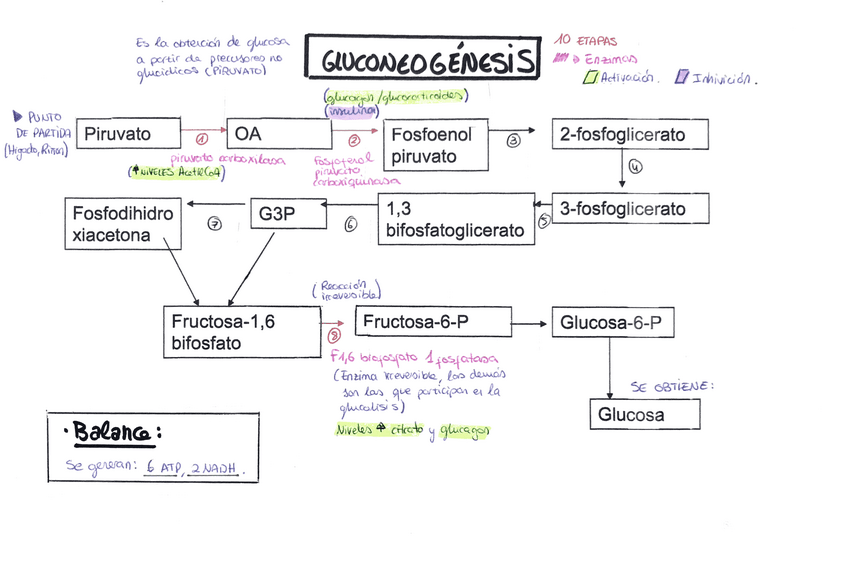 Es la obtención de glucosa
a partir de precusores no
glucídicos (PIRUVATO)
GLUCONEOGÉNESIS
10 ETAPAS
Enzimas
Activación.
Inhivición.
PUNTO
DE PARTIDA
(Hígado, Riñon)
Piruvato
①
piruvato carboxilasa
(↑ NIVELES Acetil CoA)
OA
(glucagon/glucocorticoides)
(insulina)
②
Fosfoenol
piruvato
carboxiquinasa
Fosfoenol
piruvato
③
2-fosfoglicerato
④
3-fosfoglicerato
⑤
1,3
bifosfatoglicerato
⑥
G3P
⑦
Fosfodihidro
xiacetona
Fructosa-1,6
bifosfato
(Reacción
irreversible)
⑧
F1,6 bifosfato 1 fosfatasa
(Enzima irreversible, las demás
son las que participan en la
glucolisis)
Niveles ↑ citrato y glucagon
Fructosa-6-P
Glucosa-6-P
SE OBTIENE:
Glucosa
· Balance:
Se generan: 6 ATP, 2 NADH.